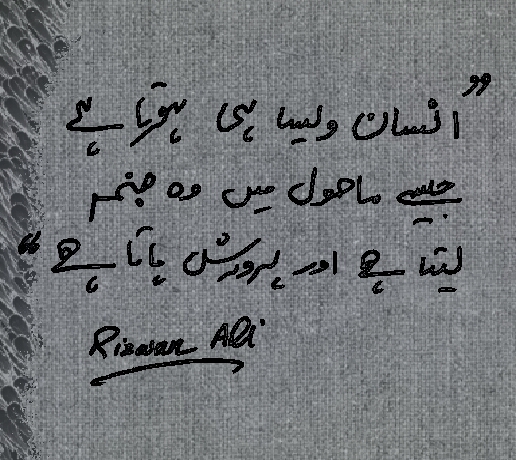 ”انسان ویسا ہی ہوتا ہے
جیسے ماحول میں وہ جنم
لیتا ہے اور پرورش پاتا ہے“
Rizwan Ali